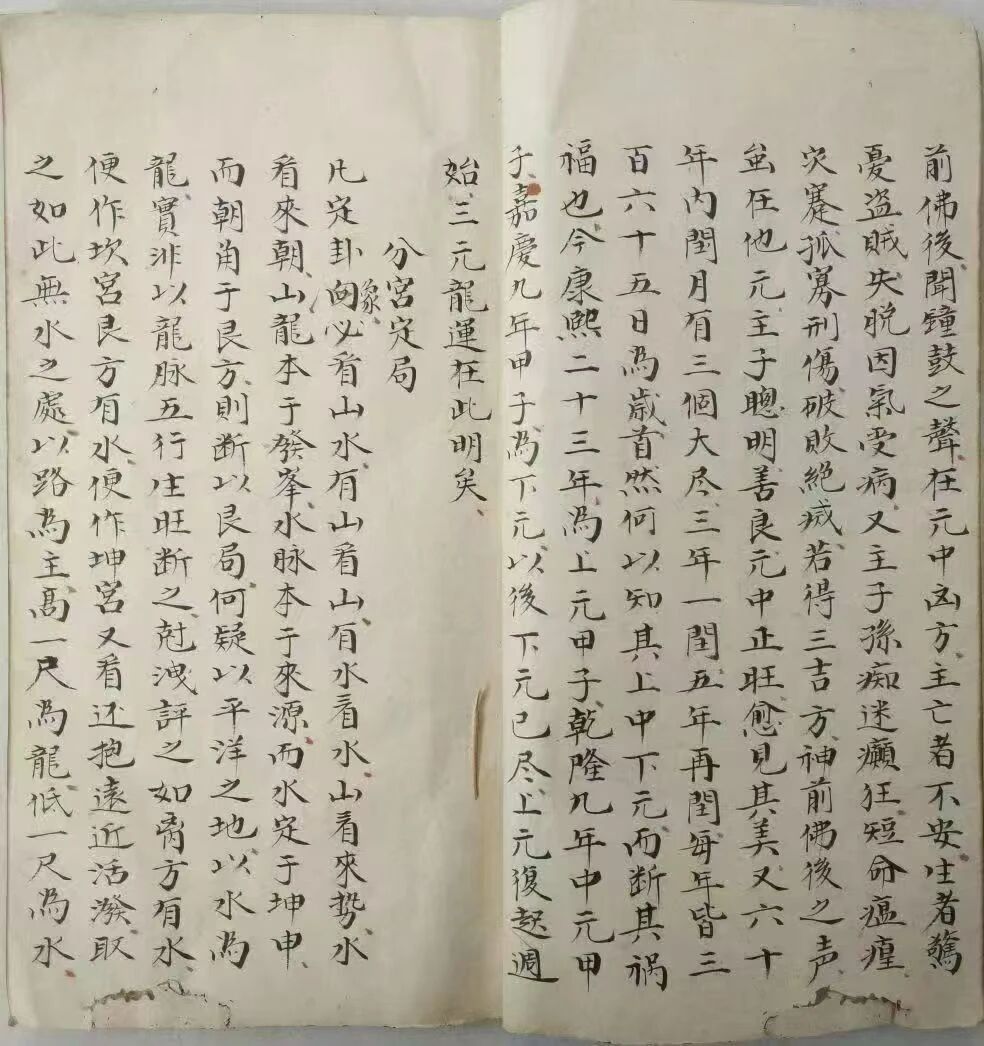 前佛後、聞鐘鼓之聲、在元中凶方、主亡者不安、生者驚
憂、盗賊失脫、因氣受病、又主子孫痴迷癲狂、短命瘟𤶊
灾蹇、孤寡刑傷、破敗絕滅、若得三吉方、神前佛後之声、
並在他元、主子聰明善良、元中正旺、愈見其美、又六十
年內閏月有三個大尽、三年一閏、五年再閏、每年皆三
百六十五日為歲首、然何以知其上中下元、而斷其祸
福也、今康熙二十三年、為上元甲子、乾隆九年中元甲
子、嘉慶九年甲子、為下元、以後下元已尽、上元復起、週
始、三元龍運在此明矣、
分宮定局
凡定卦象向、必看山水、有山看山、有水看水、山看來势、水
看來朝、山龍本于發峯、水脉本于來源、而水定于坤申、
而朝角于艮方、則断以艮局何疑、以平洋之地、以水為
龍、實非以龍脉五行生旺断之、尅洩評之、如离方有水、
便作坎宮、艮方有水、便作坤宮、又看还抱遠近活潑取
之、如此無水之處、以路為主、高一尺為龍、低一尺為水、